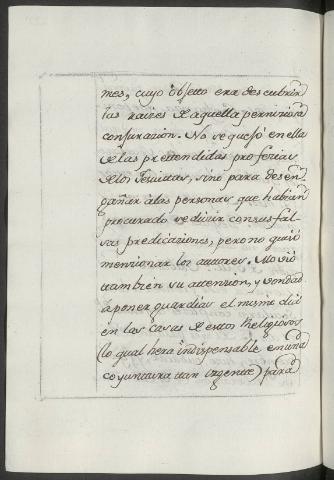 mes, cuyo objetto era descubrir
las raizes de aquella perniziosa
conjurazion. No se quejó en ella
de las prettendidas profezias
de los Jesuittas, sino para desen
gañar à las personas que habian
procurado seducir con sus fal
sas predicaziones, pero no quiso
menzionar los auttores. Movió
ttambien su attenzion, y bondad
a poner guardias el mismo dia
en las casas de estos Religiosos
(lo qual hera indispensable en una
coyunttura ttan urgentte) para